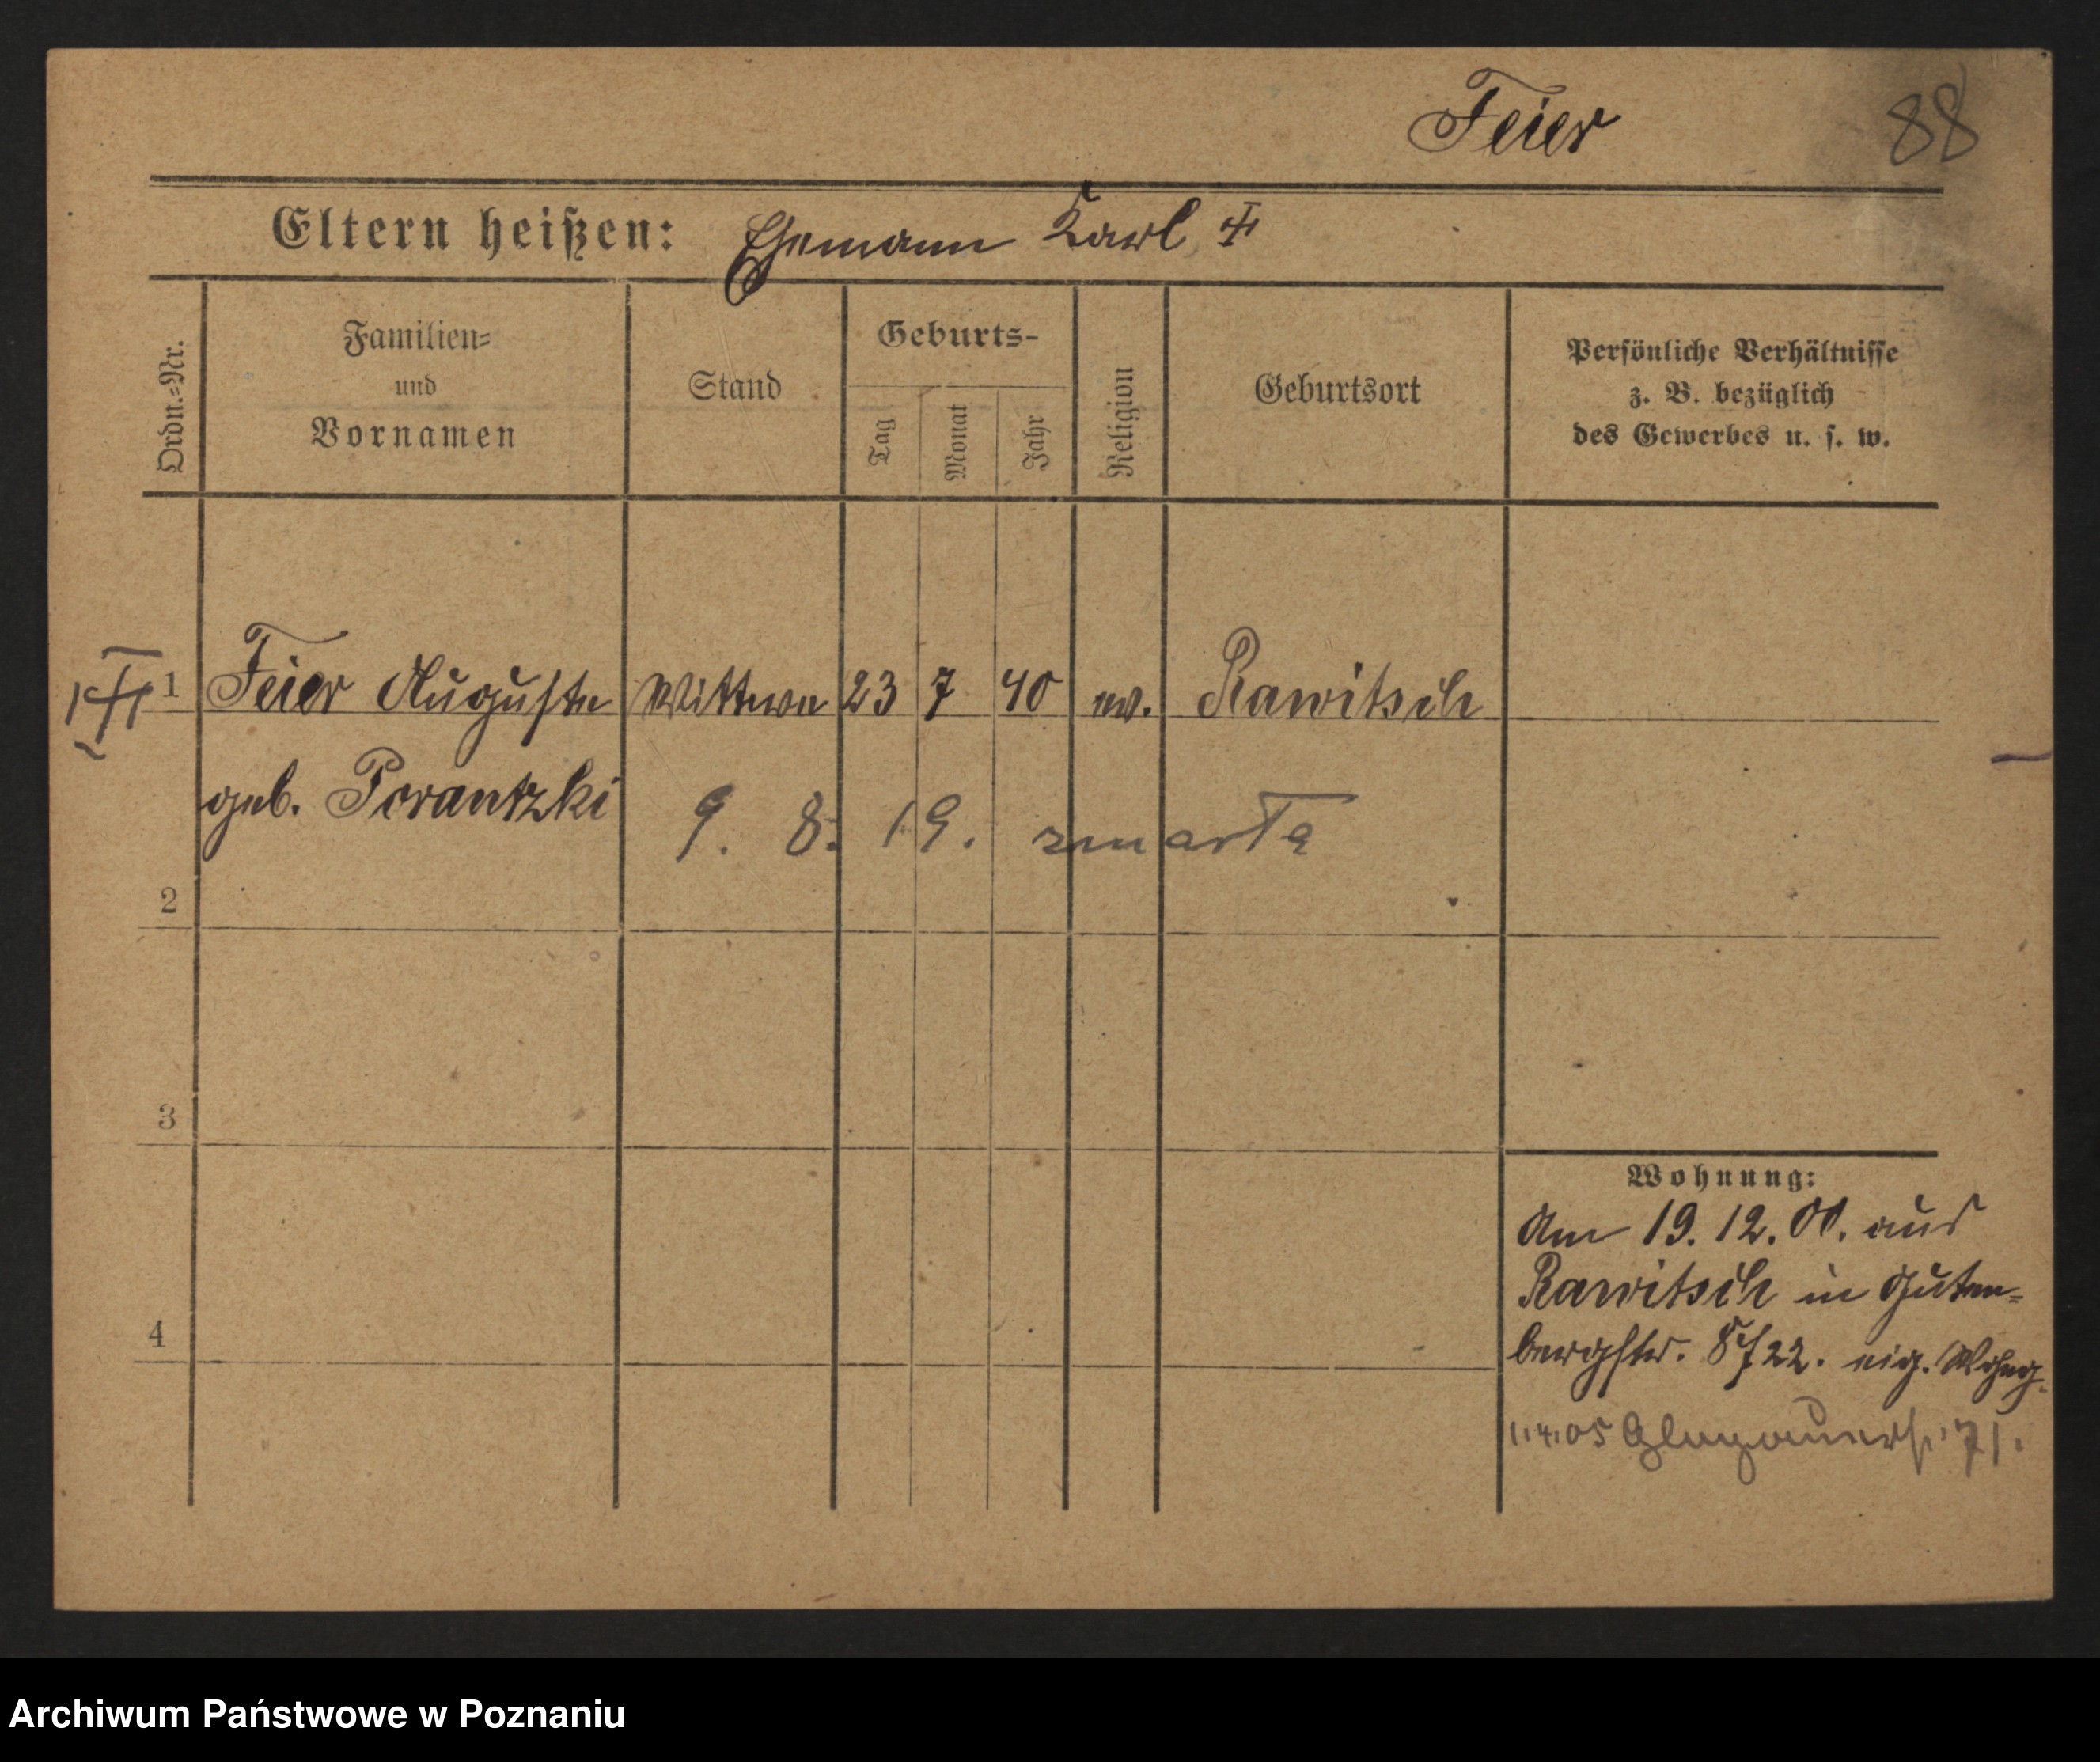 Feier 88
Eltern heißen: Ehemann Karl
Ordn.=Nr.
Familien=
und
Vornamen
Stand
Geburts-
Tag
Monat
Jahr
Religion
Geburtsort
Persönliche Verhältnisse
z. B. bezüglich
des Gewerbes u. s. w.
1 Feier Auguste Wittwe 23 7 40 ev. Rawitsch
geb. Porantzki
9. 8. 19. zmarła
2
3
4
Wohnung:
Am 19. 12. 00. aus
Rawitsch in Guten=
bergstr. 8/22. eig. Wohng.
1.4.05 71.
Archiwum Państwowe w Poznaniu